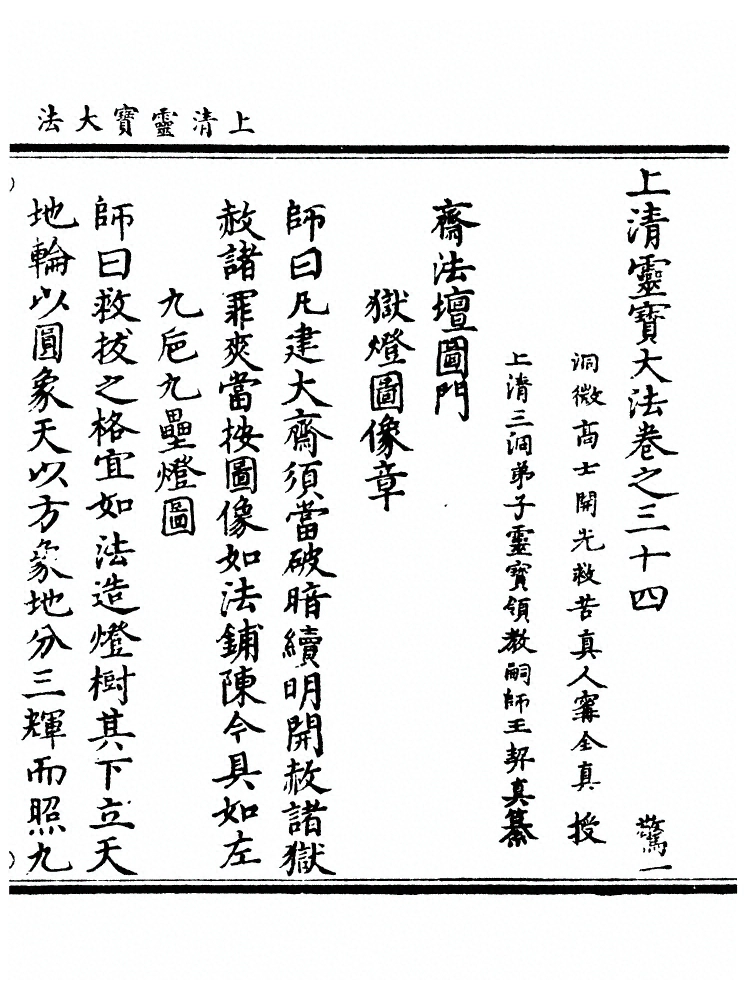 上清靈寶大法
上清靈寶大法卷之三十四 驚一
洞微高士開光救苦真人甯全真 授
上清三洞弟子靈寶領教嗣師王契真纂
齋法壇圖門
獄燈圖像章
師曰凡建大齋須當破暗續明開赦諸獄
赦諸罪爽當按圖像如法鋪陳今具如左
九巵九壘燈圖
師曰救拔之格宜如法造燈樹其下立天
地輪以圓象天以方象地分三輝而照九